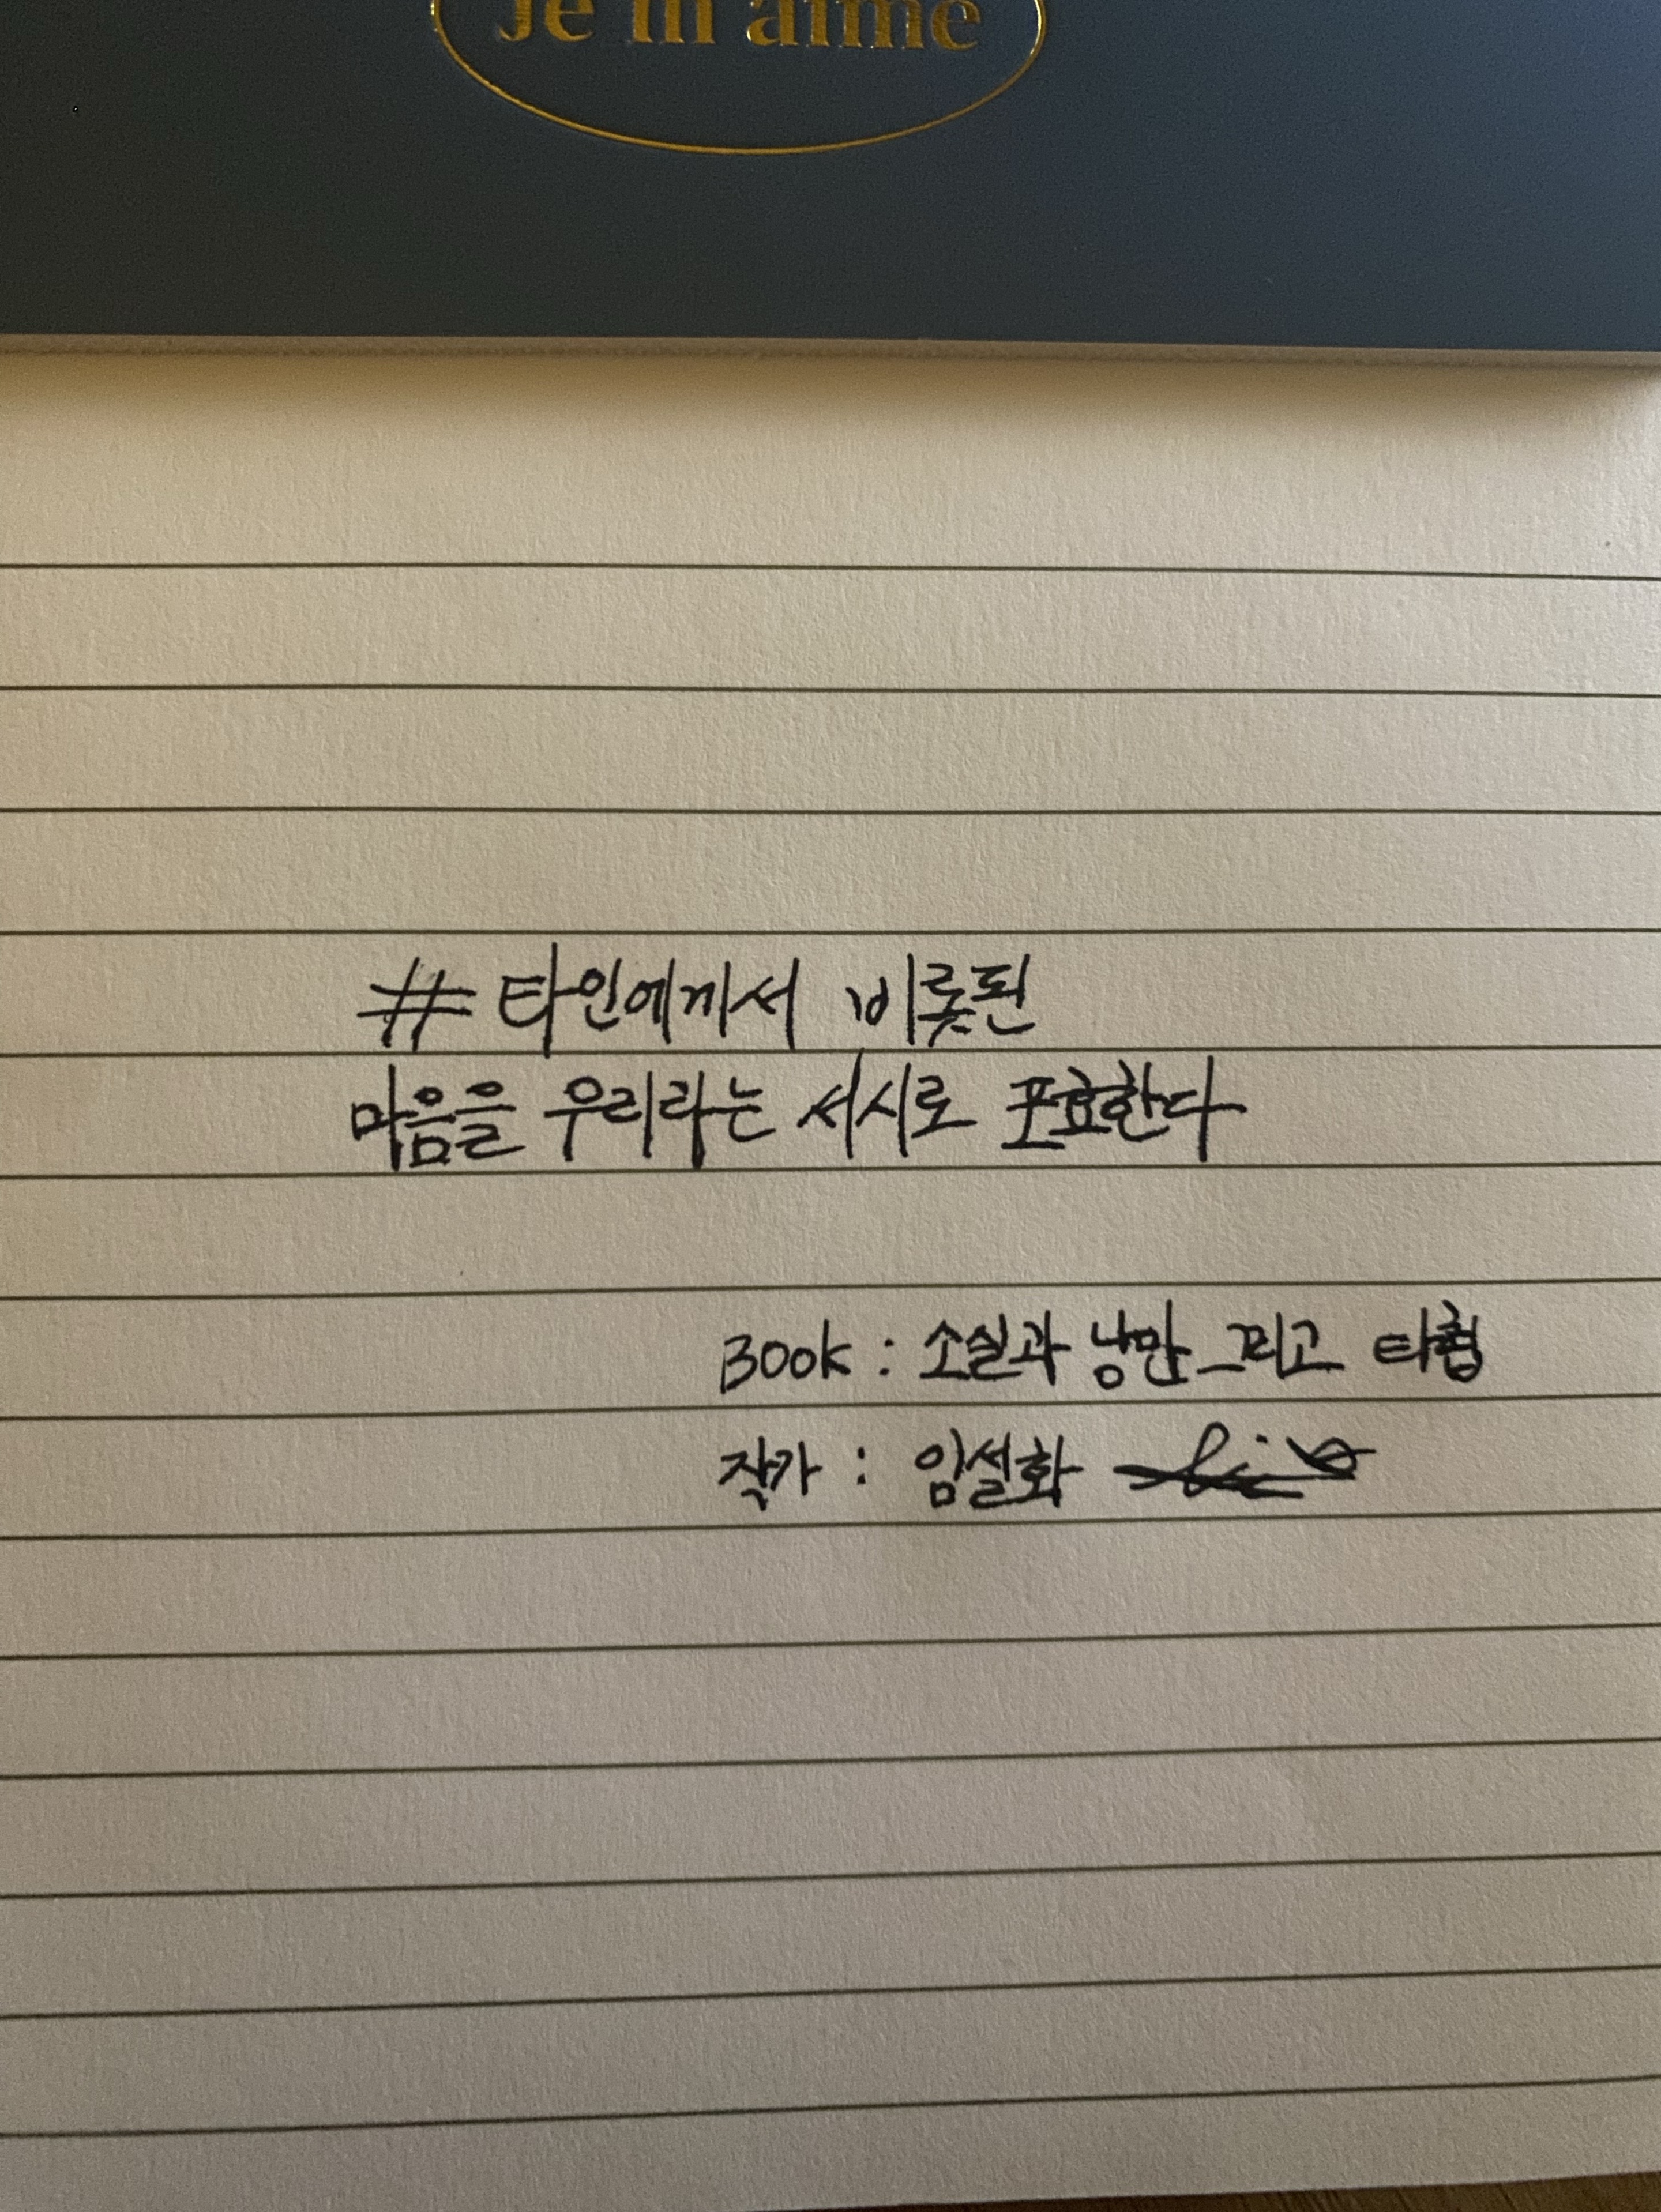 Je m'aime
# 타인에게서 비롯된
마음을 우리라는 서시로 포효한다
Book : 소실과 낭만 그리고 타협
작가 : 임설화